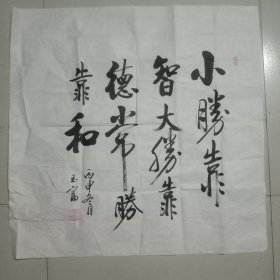 小勝靠
智大勝靠
德常勝
靠和
丙申冬月
玉富